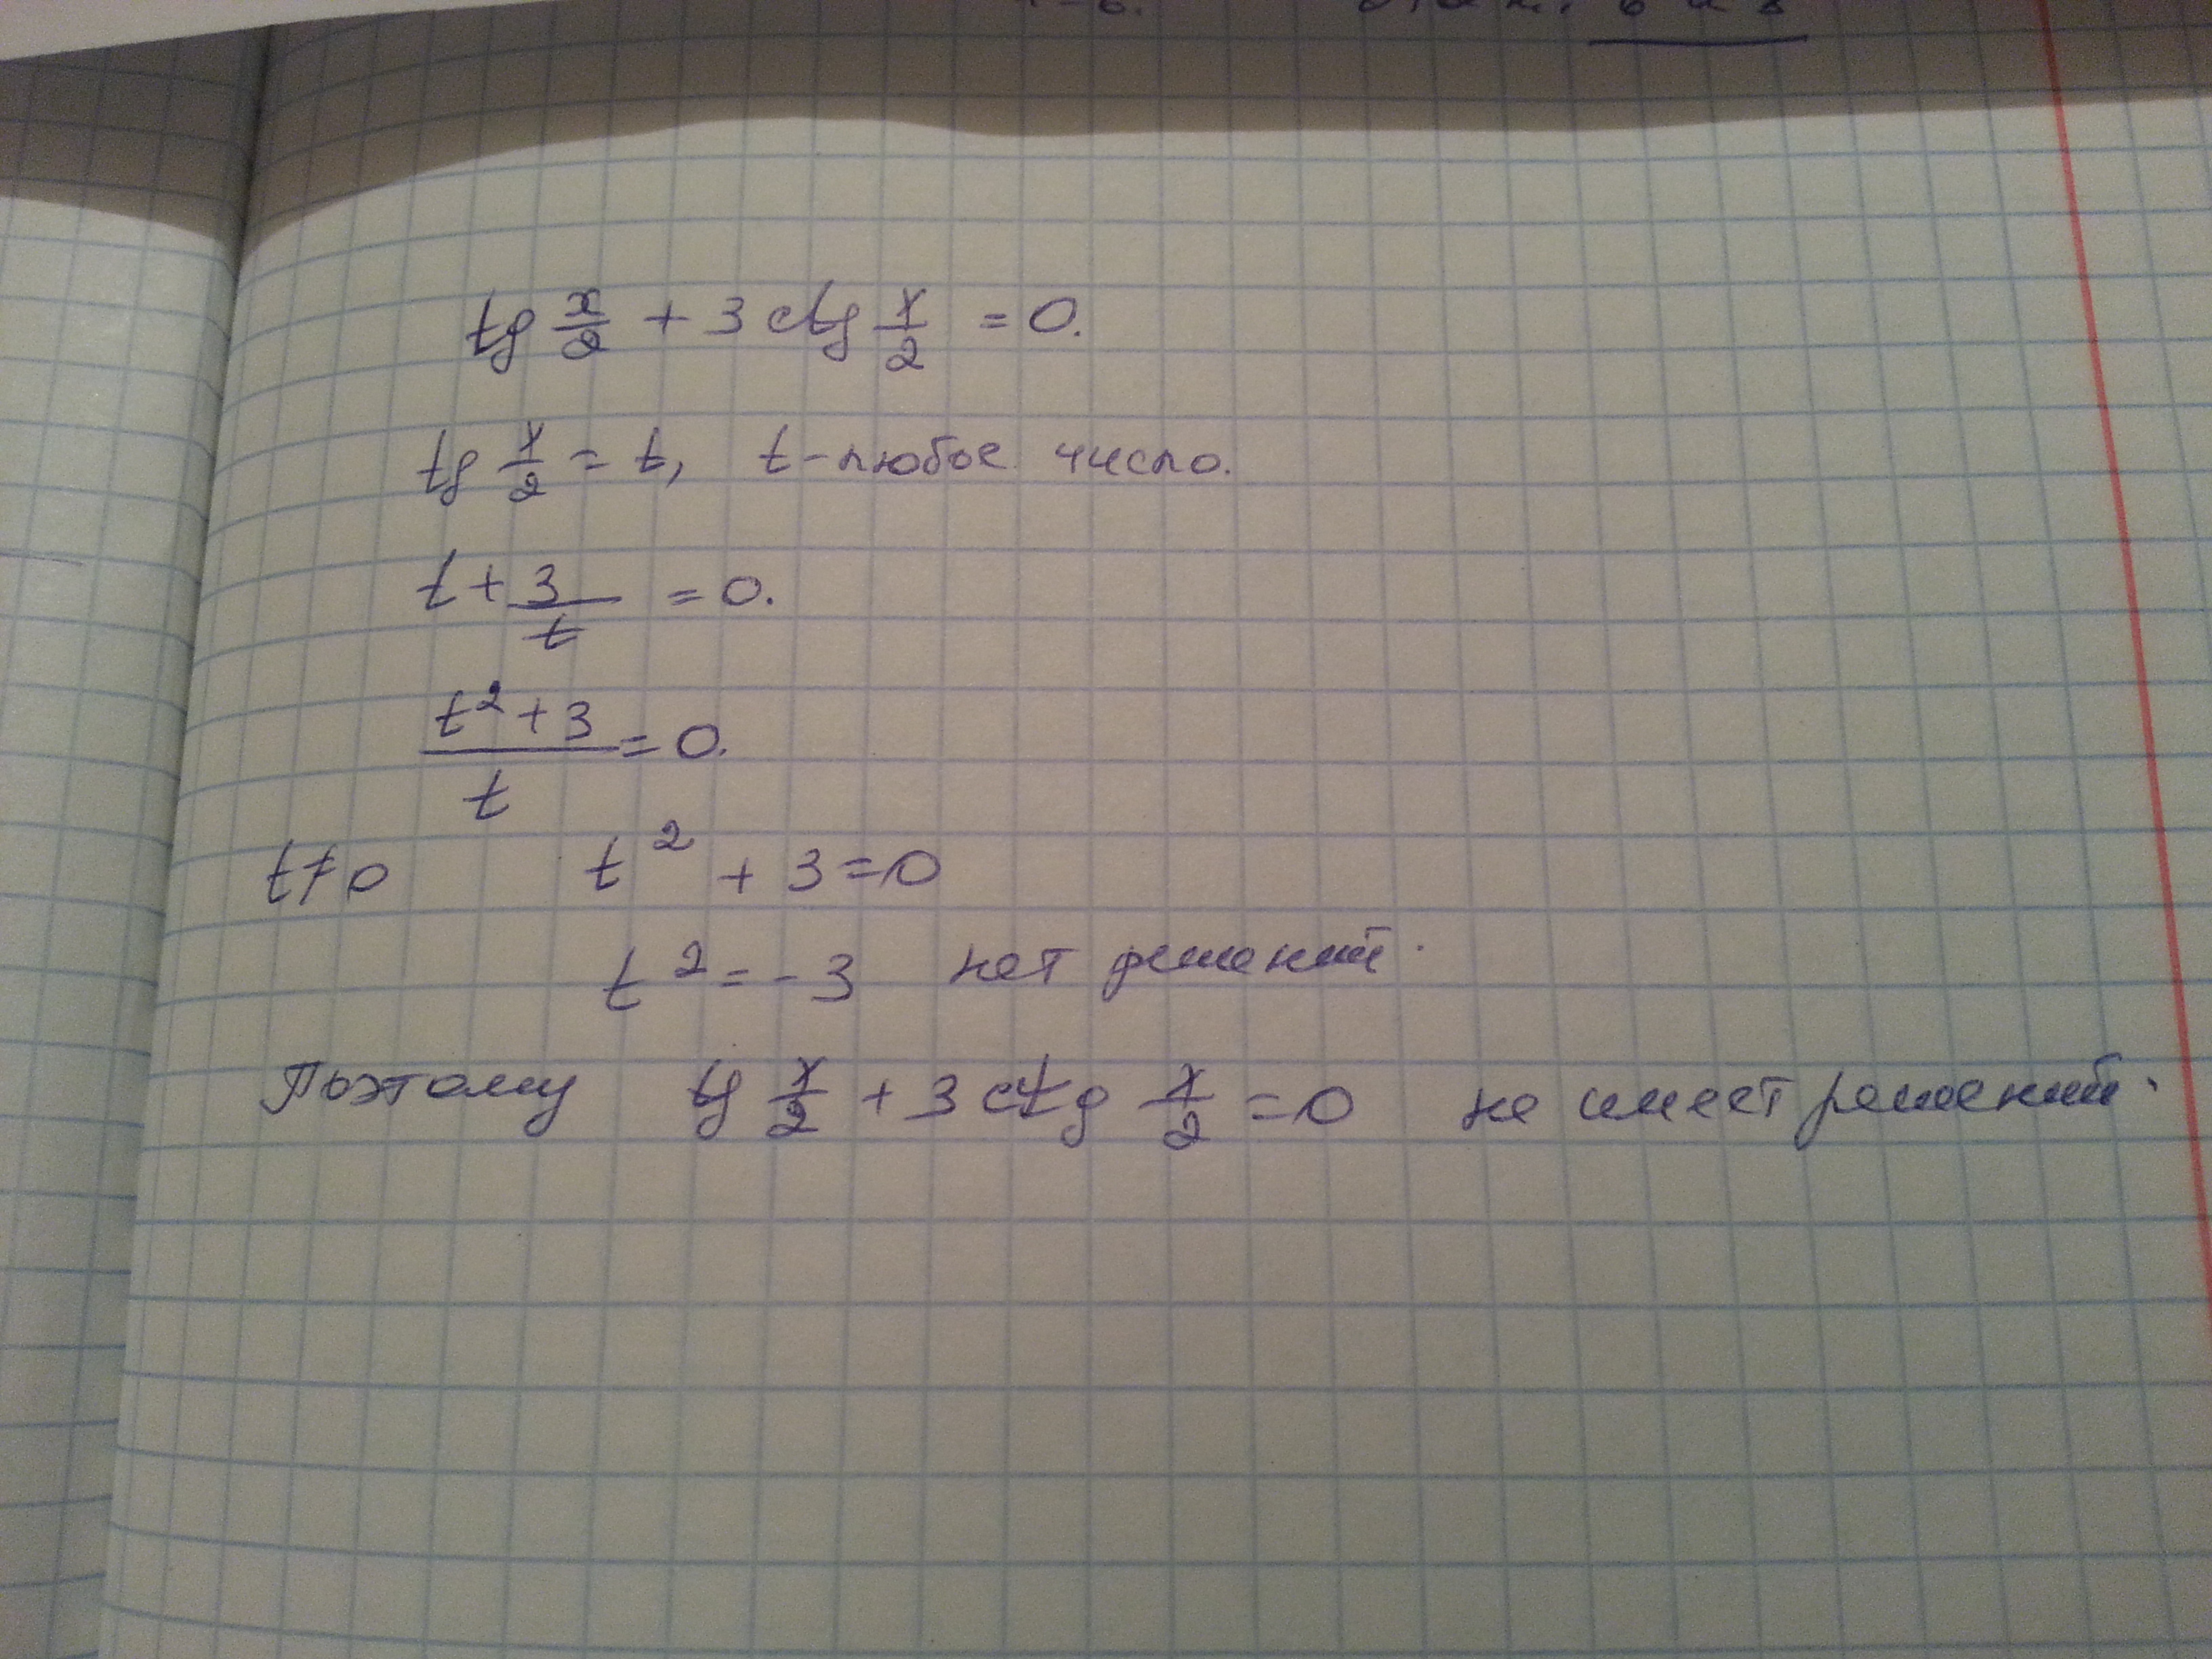 tg x/2 + 3 ctg x/2 = 0.
tg x/2 = t, t - любое число.
t + 3/t = 0.
(t² + 3)/t = 0.
t ≠ 0 t² + 3 = 0
t² = -3 нет решений.
Поэтому tg x/2 + 3 ctg x/2 = 0 не имеет решений.